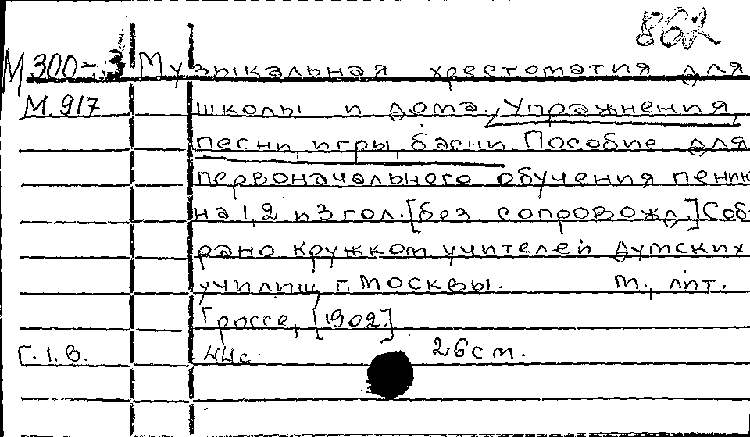 862
М 300-3 Музыкальная хрестоматия для
М.917 школы и дома. Упражнения,
песни, игры, басни. Пособие для
первоначального обучения пению
на 1, 2 и 3 гол. [без сопровожд.] Соб
рано кружком учителей думских
училищ г. Москвы. М., лит.
Гроссе, [1902]
Г.1.в. 44с. 26см.